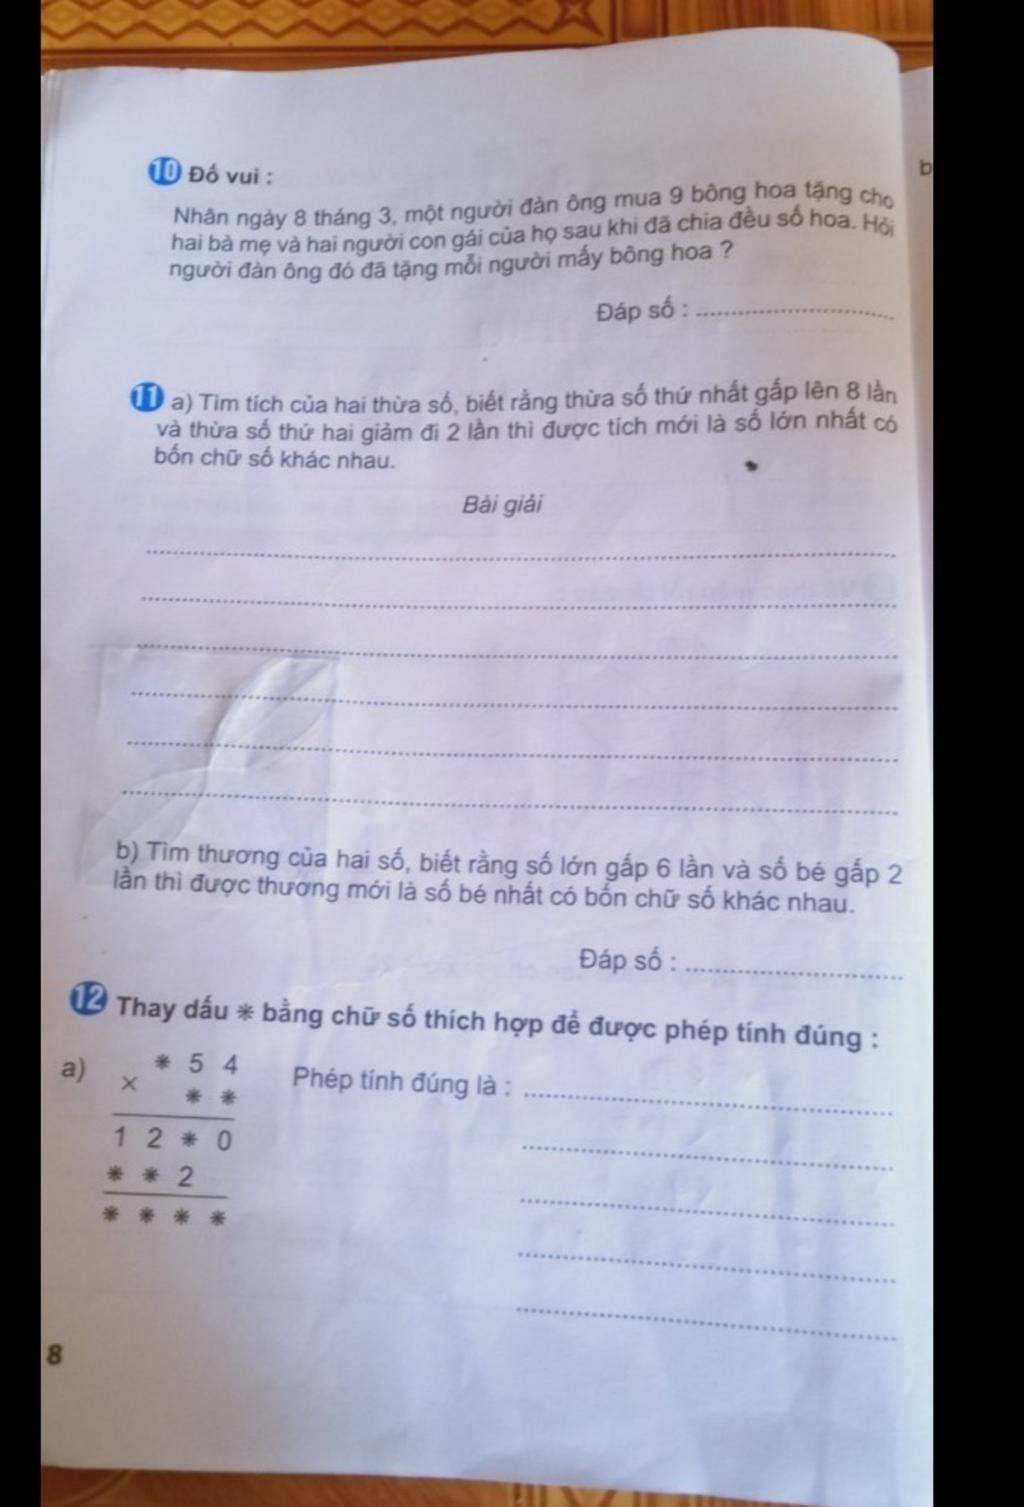 10 Đố vui :
Nhân ngày 8 tháng 3, một người đàn ông mua 9 bông hoa tặng cho
hai bà mẹ và hai người con gái của họ sau khi đã chia đều số hoa. Hỏi
người đàn ông đó đã tặng mỗi người mấy bông hoa ?
Đáp số : ..............................
11 a) Tìm tích của hai thừa số, biết rằng thừa số thứ nhất gấp lên 8 lần
và thừa số thứ hai giảm đi 2 lần thì được tích mới là số lớn nhất có
bốn chữ số khác nhau.
Bài giải
b) Tìm thương của hai số, biết rằng số lớn gấp 6 lần và số bé gấp 2
lần thì được thương mới là số bé nhất có bốn chữ số khác nhau.
Đáp số : ..............................
12 Thay dấu * bằng chữ số thích hợp để được phép tính đúng :
a) * 5 4
× * *
1 2 * 0
* * 2
* * * *
Phép tính đúng là : ..............................
8
b